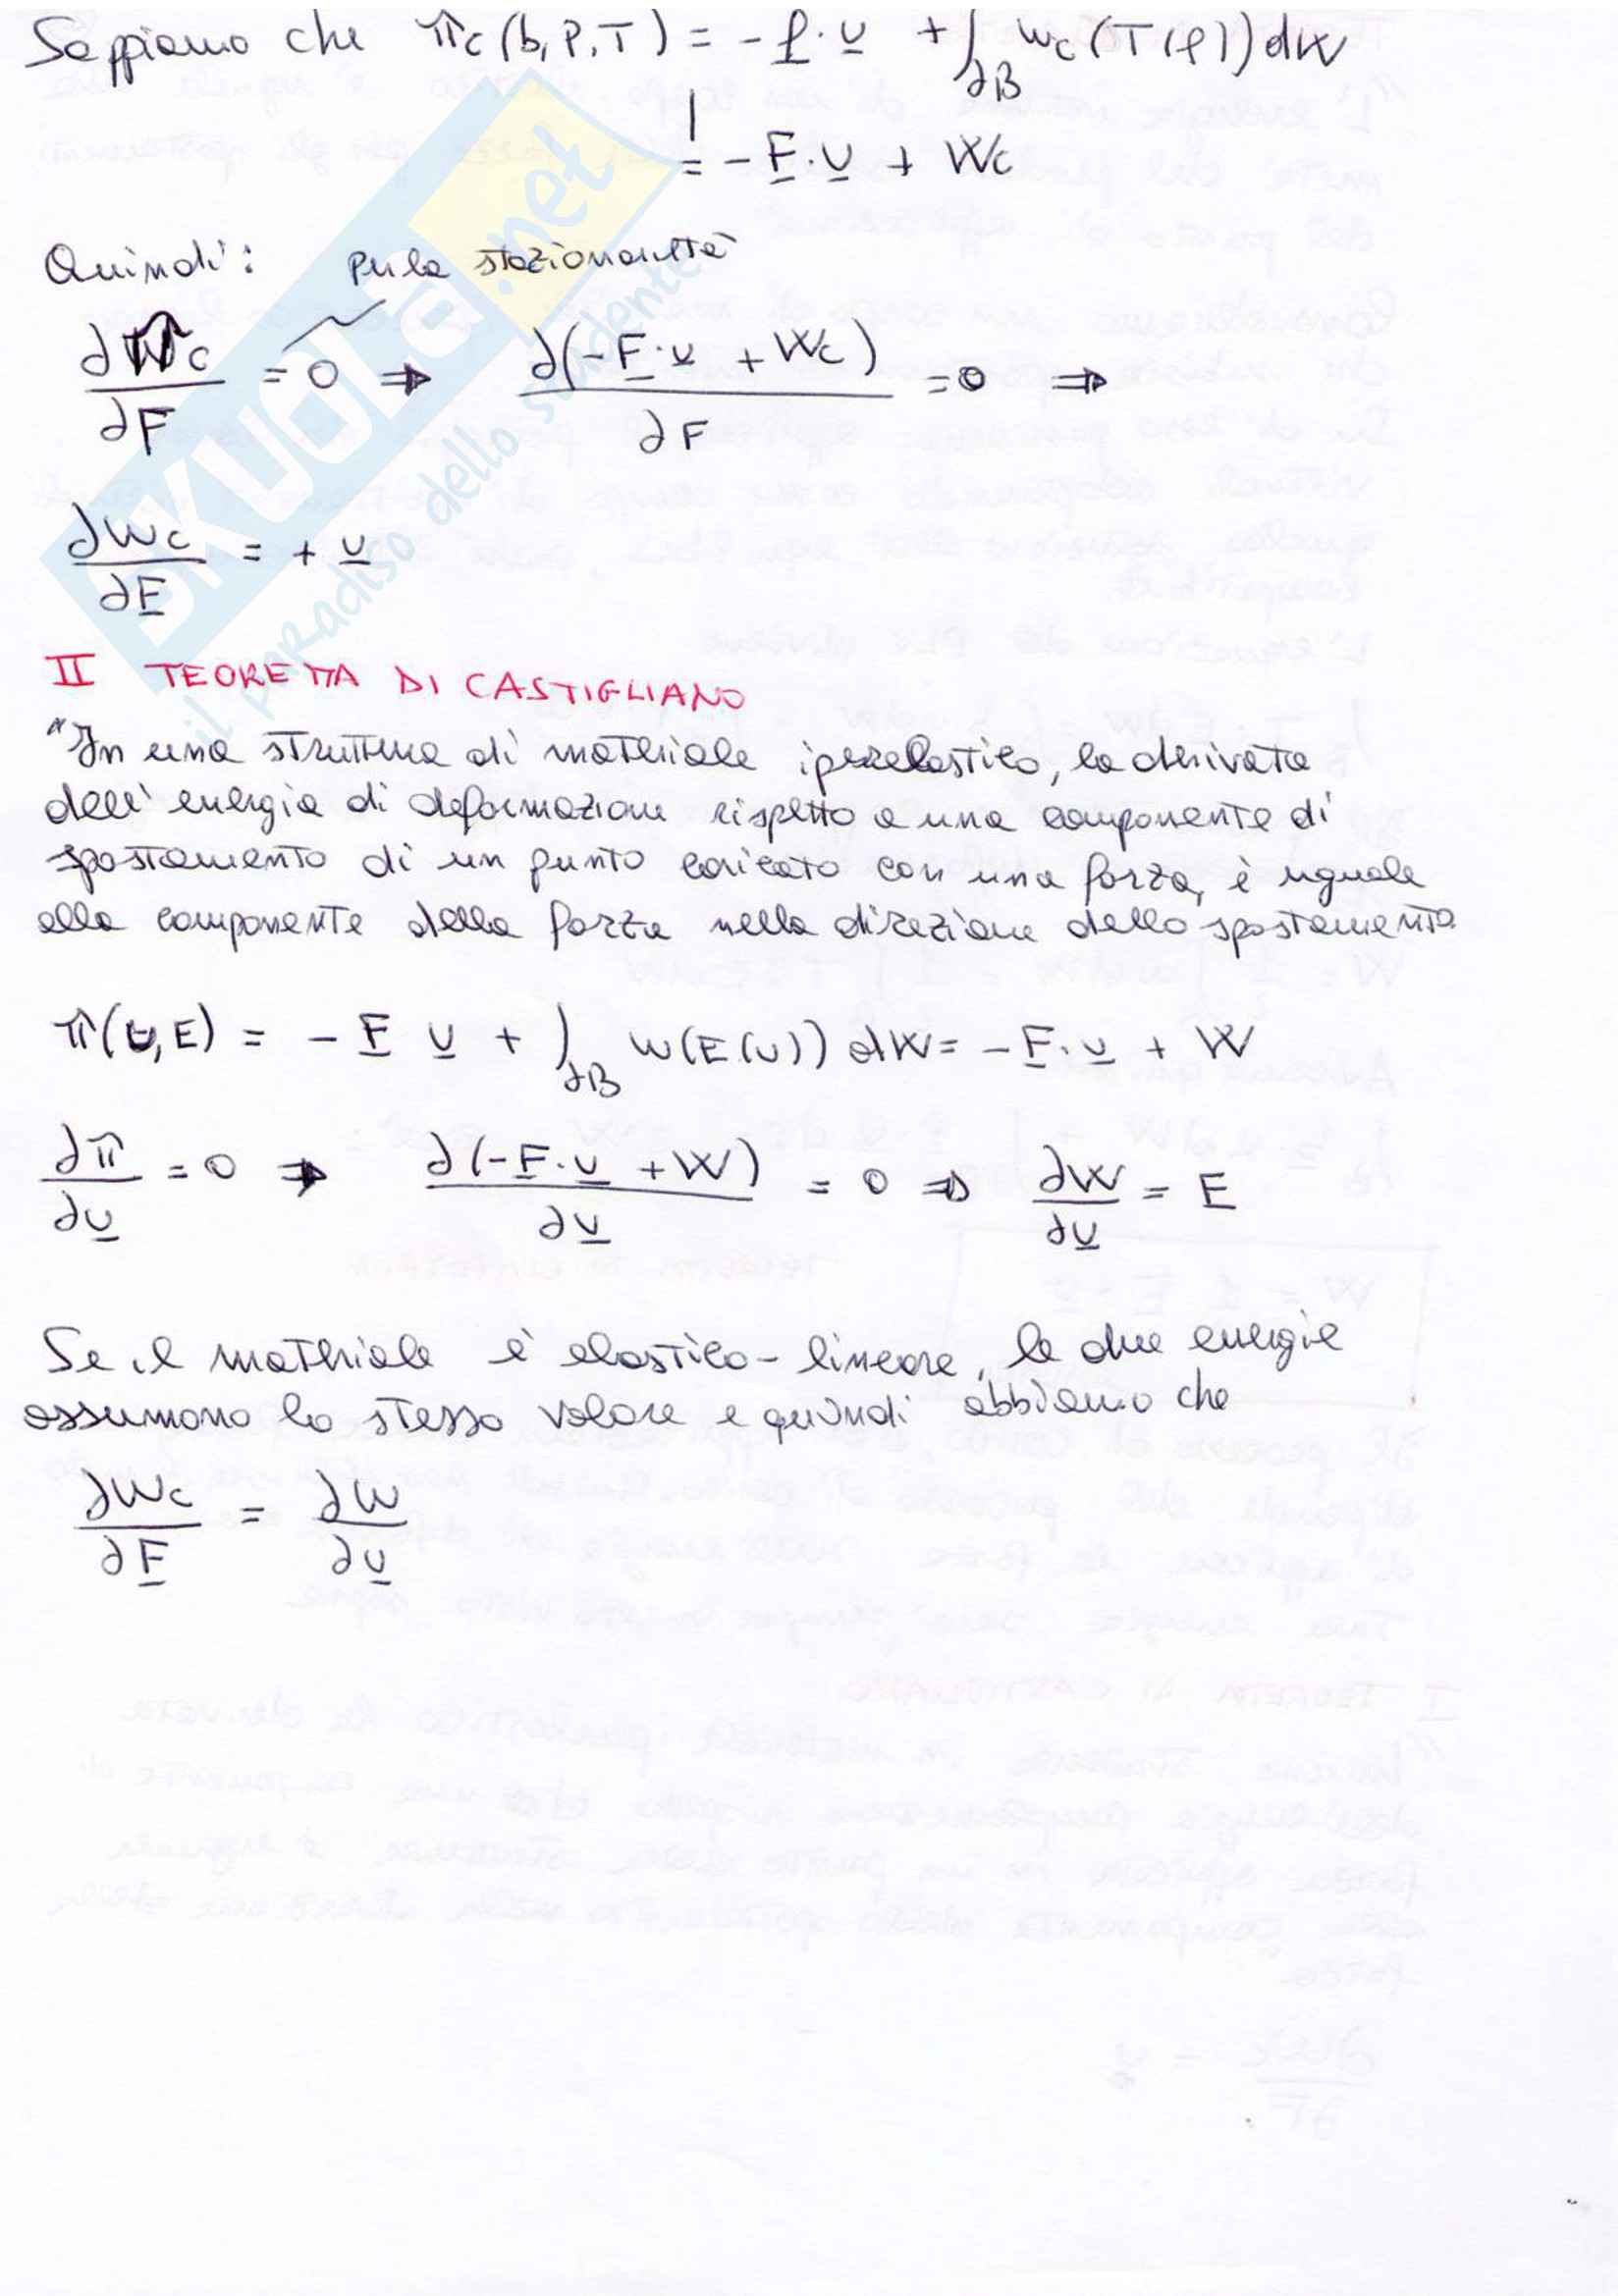 Sappiamo che πc(b,P,T) = - f·u + ∫∂B wc(T(f))dW
= - F·u + Wc
Quindi: per la stazionarietà
∂πc/∂F = 0 ⇒ ∂(-F·u + Wc)/∂F = 0 ⇒
∂Wc/∂F = + u
II TEOREMA DI CASTIGLIANO
"In una struttura di materiale iperelastico, la derivata
dell'energia di deformazione rispetto a una componente di
spostamento di un punto caricato con una forza, è uguale
alla componente della forza nella direzione dello spostamento
π(u,E) = - F u + ∫∂B w(E(u)) dW = - F·u + W
∂π/∂u = 0 ⇒ ∂(-F·u + W)/∂u = 0 ⇒ ∂W/∂u = F
Se il materiale è elastico-lineare, le due energie
assumono lo stesso valore e quindi abbiamo che
∂Wc/∂F = ∂W/∂u
SKUOLA.net
il paradiso dello studente